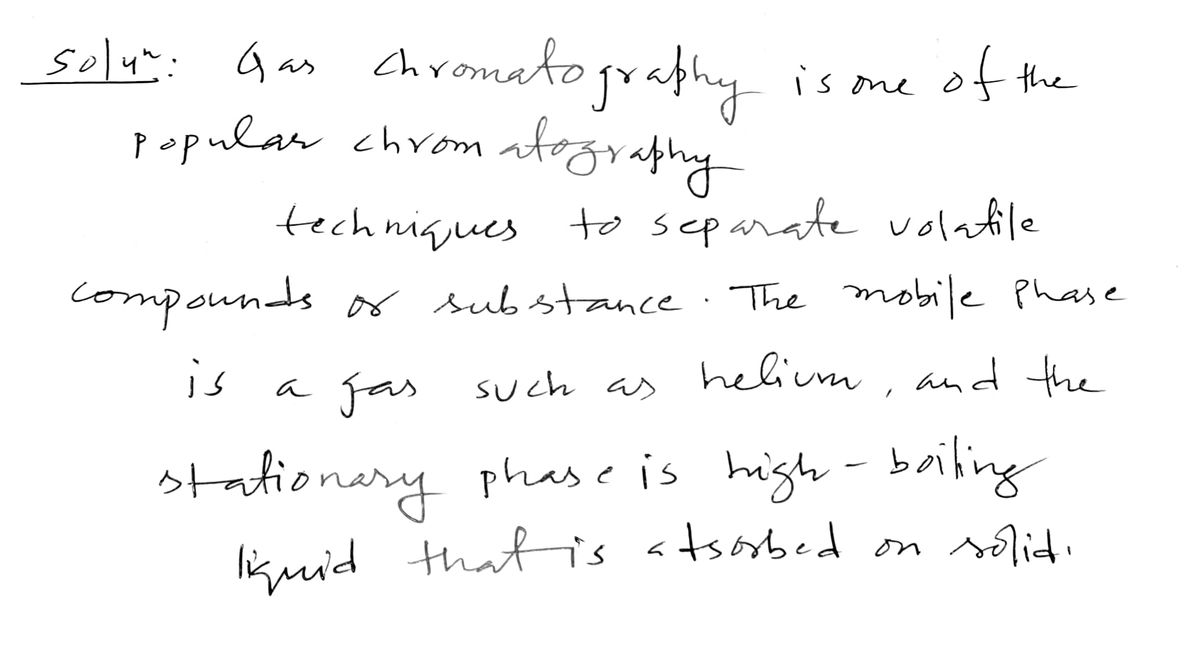 Solun: Gas chromatography is one of the
popular chromatography
techniques to separate volatile
compounds or substance. The mobile phase
is a gas such as helium, and the
stationary phase is high-boiling
liquid that is atsorbed on solid.